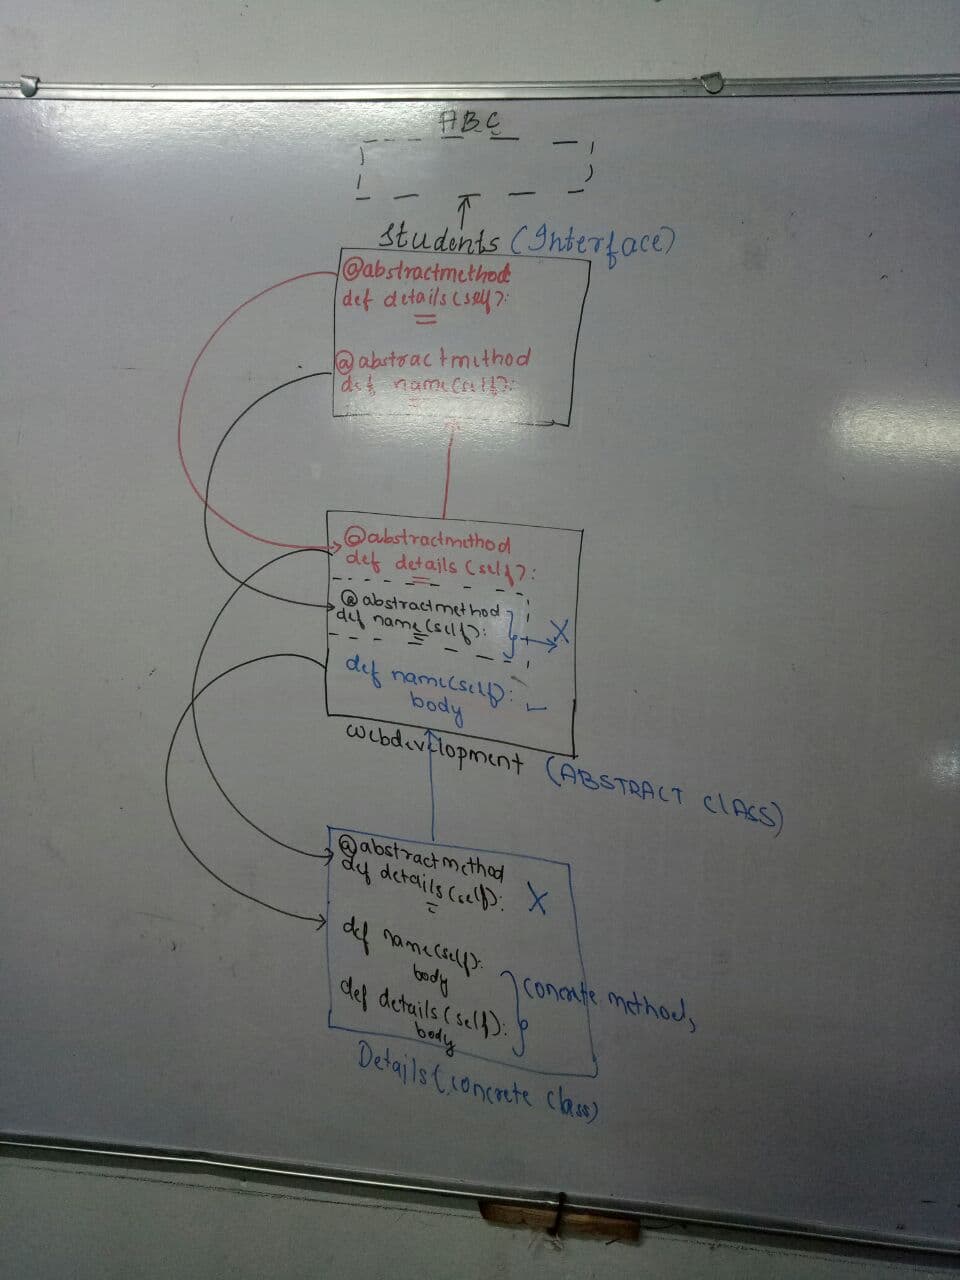 ABC
Students (Interface)
@abstractmethod
def details(self):
@abstractmethod
def name(self):
@abstractmethod
def details(self):
@abstractmethod
def name(self):
X
def name(self):
body
Webdevelopment (ABSTRACT ClASS)
@abstractmethod
def details(self):
X
def name(self):
body
concrate methods
def details(self):
body
Details(concrete class)